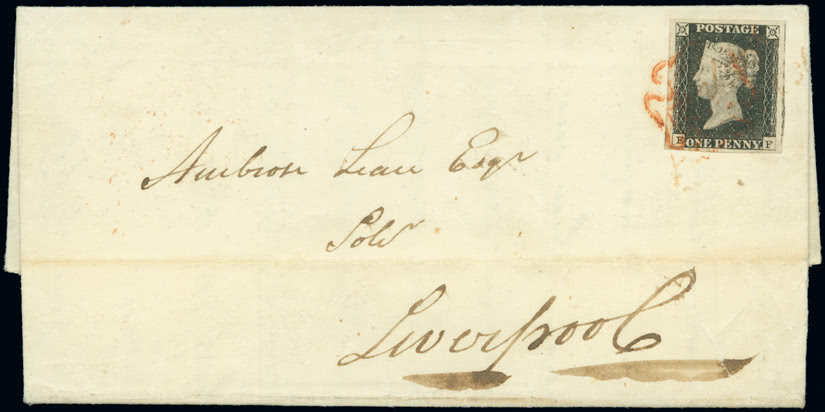 POSTAGE
E ONE PENNY F
Ambrose Lace Esqr
Solr
Liverpool